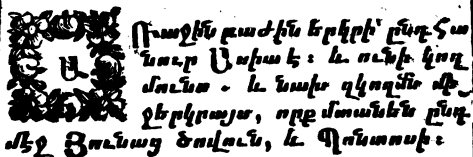 Ա
Ռաջին բաժին երկրի՝ ընդ Հա
նուր Ասիա է։ և ունի կող
մունս · և նախ զկողմն մի
ջերկրայս, որք մտանեն ընդ
մէջ Յունաց ծովուն, և Պոնտոսի։